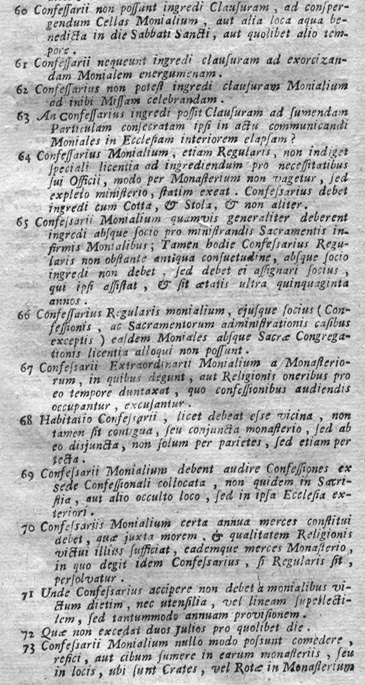 60 Confeſſarii non poſſunt ingredi Clauſuram, ad conſper-
gendum Cellas Monialium, aut alia loca aqua be-
nedicta in die Sabbati Sancti, aut quolibet alio tem-
pore.
61 Confeſſarii nequeunt ingredi clauſuram ad exorcizan-
dam Monialem energumenam.
62 Confeſſarius non poteſt ingredi clauſuram Monialium
ad inibi Miſſam celebrandam.
63 An Confeſſarius ingredi poſſit Clauſuram ad ſumendam
Particulam conſecratam ipſi in actu communicandi
Moniales in Eccleſiam interiorem elapſam?
64 Confeſſarius Monialium, etiam Regularis, non indiget
ſpeciali licentia ad ingrediendum pro neceſſitatibus
ſui Officii, modo per Monaſterium non vagetur, ſed
expleto miniſterio, ſtatim exeat. Confeſſarius debet
ingredi cum Cotta, & Stola, & non aliter.
65 Confeſſarii Monialium quamvis generaliter deberent
ingredi abſque ſocio pro miniſtrandis Sacramentis in-
firmis Monialibus; Tamen hodie Confeſſarius Regu-
laris non obſtante antiqua conſuetudine, abſque ſocio
ingredi non debet, ſed debet ei aſſignari ſocius,
qui ipſi aſſiſtat, & ſit ætatis ultra quinquaginta
annos.
66 Confeſſarius Regularis monialium, ejuſque ſocius (Con-
feſſionis, ac Sacramentorum adminiſtrationis caſibus
exceptis) eaſdem Moniales abſque Sacræ Congrega-
tionis licentia alloqui non poſſunt.
67 Confeſſarii Extraordinarii Monialium a Monaſterio-
rum, in quibus degunt, aut Religionis oneribus pro
eo tempore duntaxat, quo confeſſionibus audiendis
occupantur, excuſantur.
68 Habitatio Confeſſarii, licet debeat eſſe vicina, non
tamen ſit contigua, ſeu conjuncta monaſterio, ſed ab
eo disjuncta, non ſolum per parietes, ſed etiam per
tecta.
69 Confeſſarii Monialium debent audire Confeſſiones ex
ſede Confeſſionali collocata, non quidem in Sacri-
ſtia, aut alio occulto loco, ſed in ipſa Eccleſia ex-
teriori.
70 Confeſſariis Monialium certa annua merces conſtitui
debet, quæ juxta morem, & qualitatem Religionis
victui illius ſufficiat, eademque merces Monaſterio,
in quo degit idem Confeſſarius, ſi Regularis ſit,
perſolvatur.
71 Unde Confeſſarius accipere non debet a monialibus vi-
ctum dietim, nec utenſilia, vel lineam ſupellecti-
lem, ſed tantummodo annuam proviſionem.
72 Quæ non excedat duos Julios pro quolibet die.
73 Confeſſarii Monialium nullo modo poſſunt comedere,
refici, aut cibum ſumere in earum monaſteriis, ſeu
in locis, ubi ſunt Crates, vel Rotæ in Monaſterium